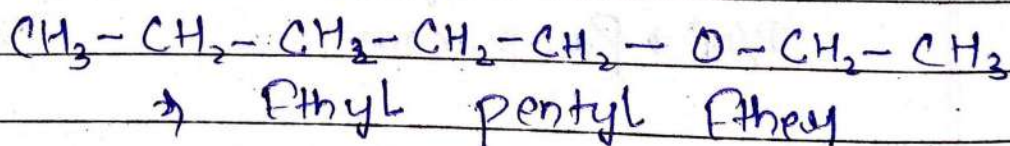 CH₃-CH₂-CH₂-CH₂-CH₂-O-CH₂-CH₃
→ Ethyl pentyl Ether